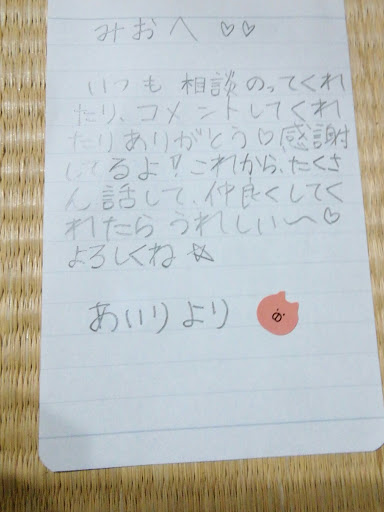 みおへ ♡♡
いつも 相談のってくれ
たり、コメントしてくれ
たりありがとう♡感謝
してるよ!これから、たくさ
ん 話して、仲良くしてく
れたら うれしい〜♡
よろしくね ☆
あいりより